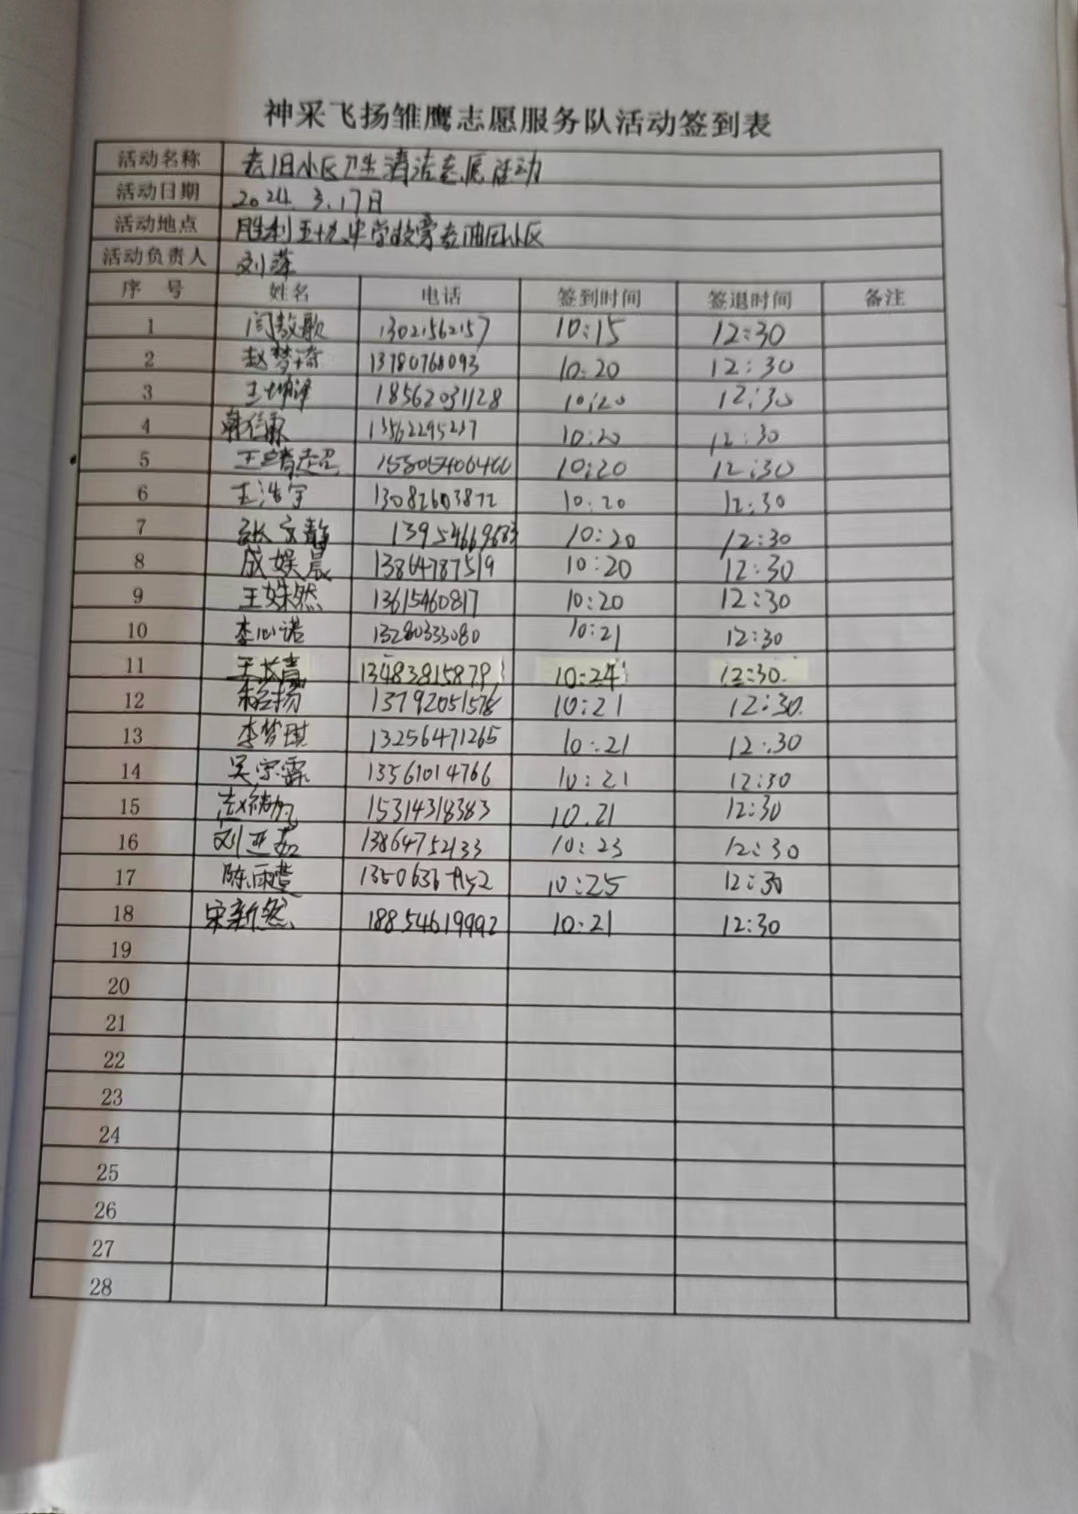 神采飞扬雏鹰志愿服务队活动签到表
活动名称 老旧小区卫生清洁志愿活动
活动日期 2024.3.17日
活动地点 胜利五十九中学校旁老油田小区
活动负责人 刘萍
序号 姓名 电话 签到时间 签退时间 备注
1 闫敖歌 13021562157 10:15 12:30
2 赵梦琦 13780768093 10:20 12:30
3 王坤泽 18562031128 10:20 12:30
4 13562295237 10:20 12:30
5 10:20 12:30
6 王浩宇 13082603872 10:20 12:30
7 张京静 10:20 12:30
8 成娱晨 13864787519 10:20 12:30
9 王姝然 13615460817 10:20 12:30
10 李心诺 13280333080 10:21 12:30
11 王长青 13483815879 10:24 12:30
12 13792051578 10:21 12:30
13 李梦琪 13256471265 10:21 12:30
14 吴宗霖 13561014766 10:21 12:30
15 15314318383 10.21 12:30
16 刘亚茹 13864752133 10:23 12:30
17 陈雨萱 10:25 12:30
18 宋新然 18854619992 10:21 12:30
19
20
21
22
23
24
25
26
27
28